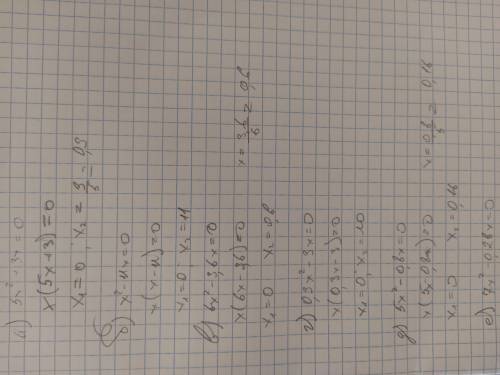 а) 5x² + 3x = 0
x(5x+3)=0
x₁ = 0, x₂ =
б) x² - 11x = 0
x(x-11)=0
x₁=0 x₂=11
в) 6x² - 3,6x = 0
x(6x-3,6)=0 x = 3,6/6 = 0,6
x₁=0 x₂=0,6
г) 0,3x² - 3x = 0
x(0,3x-3)=0
x₁=0, x₂=10
д) 5x² - 0,8x = 0
x(5x-0,8)=0 x = 0,8/5 = 0,16
x₁=0 x₂=0,16
е) 7x² - 0,28x = 0